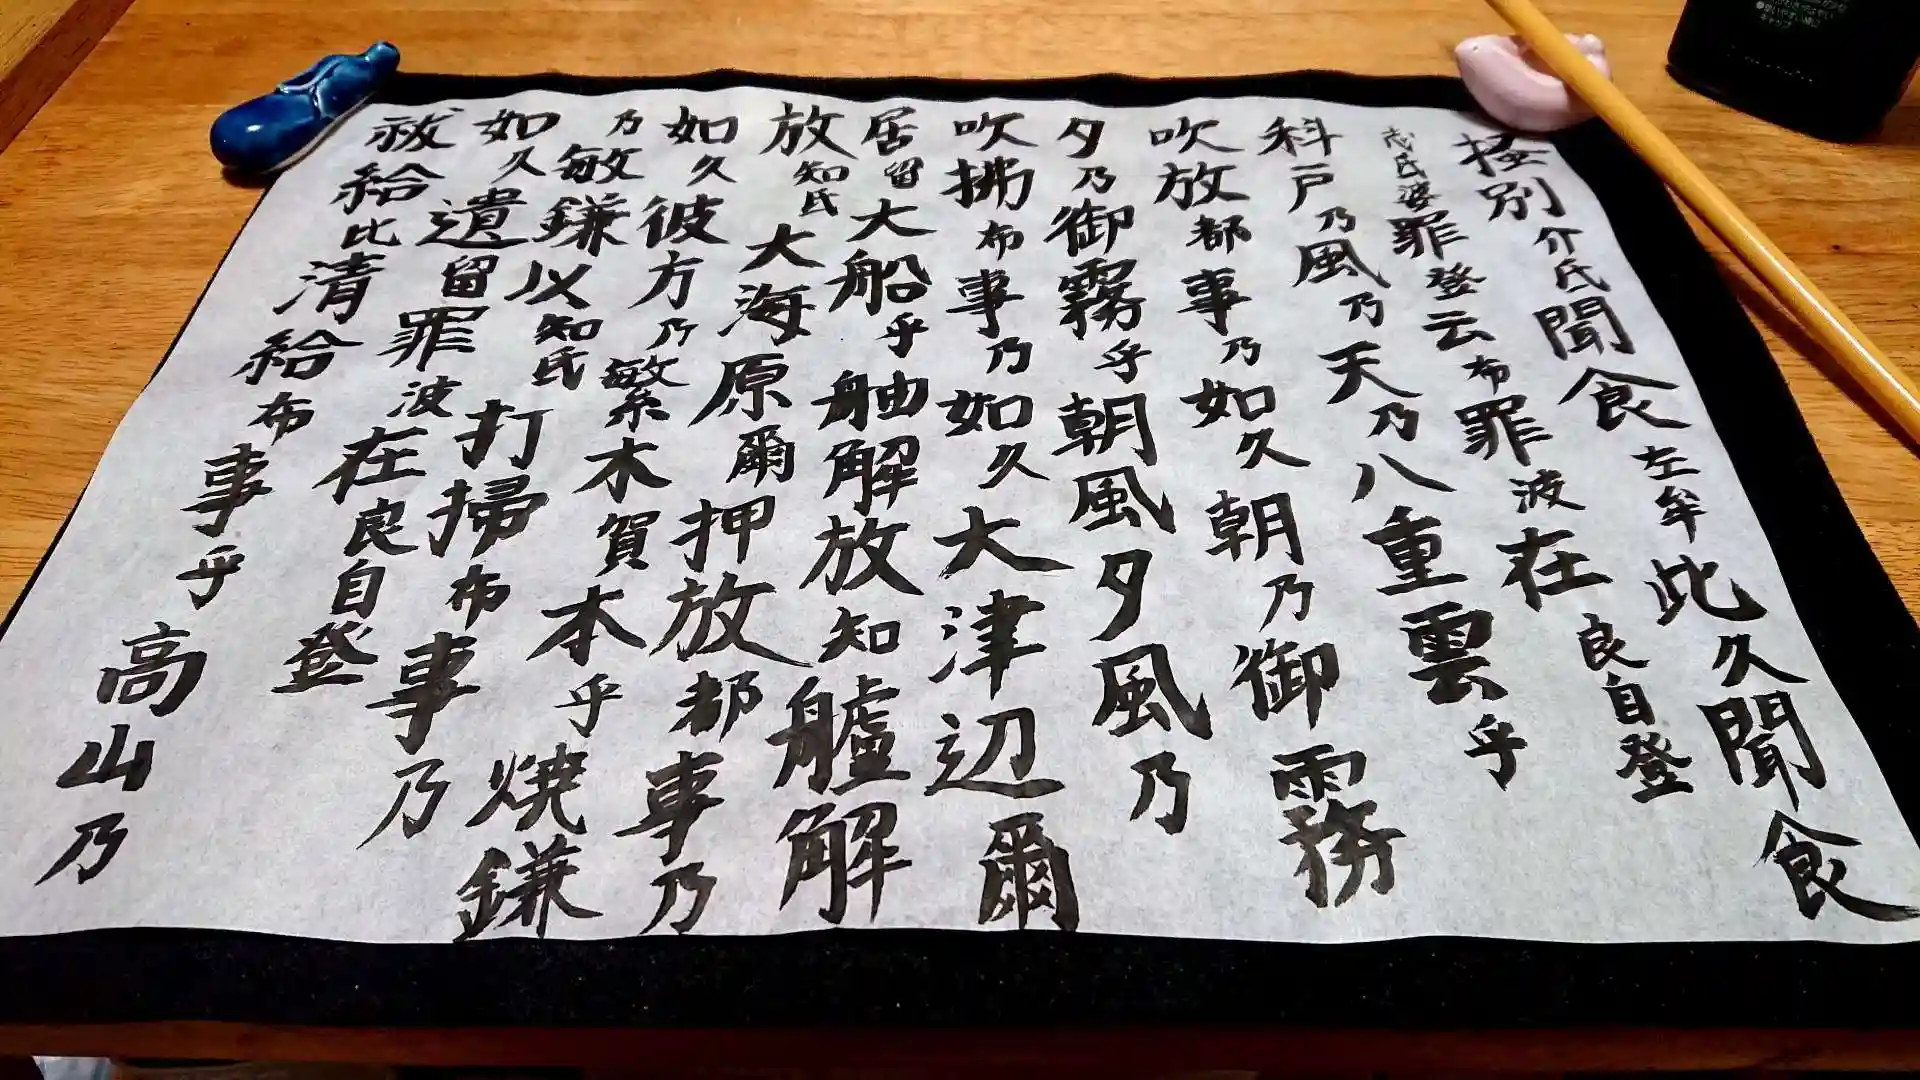 別介氐聞食左牟此久聞食
志氐婆罪登云布罪波在良自登
科戸乃風乃天乃八重雲乎
吹放都事乃如久朝乃御霧
夕乃御霧乎朝風夕風乃
吹拂布事乃如久大津辺爾
居留大船乎舳解放知艫解
放知氐大海原爾押放都事乃
如久彼方乃繁木賀本乎焼鎌
乃敏鎌以知氐打掃布事乃
如久遺留罪波在良自登
祓給比清給布事乎高山乃